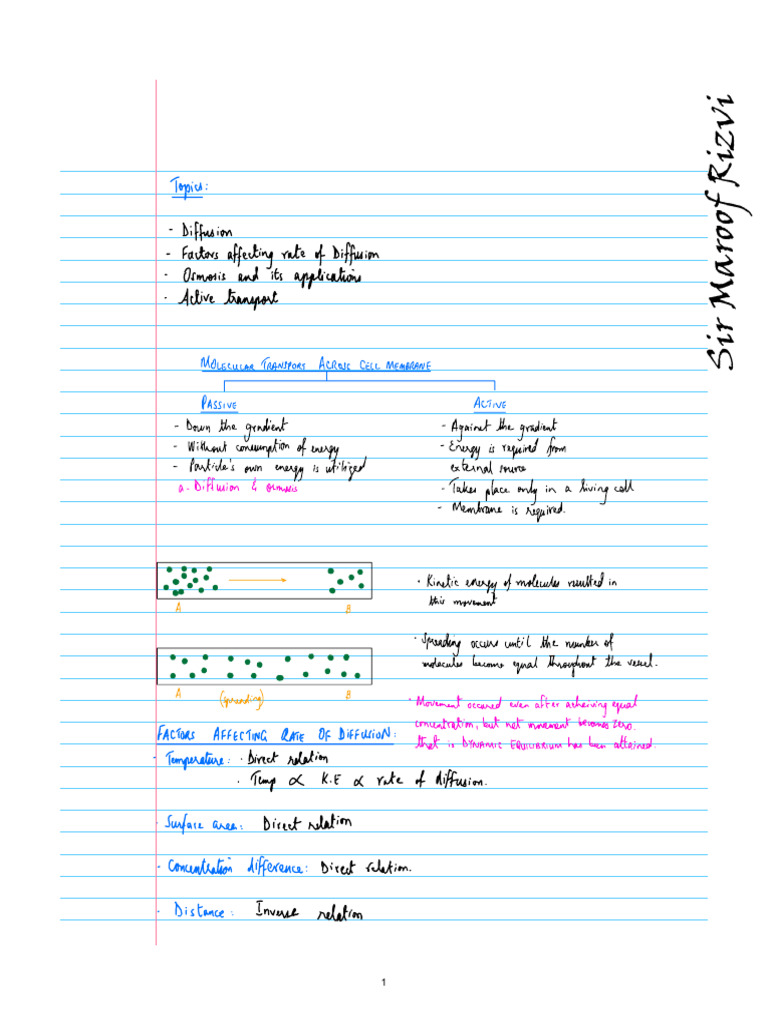 Sir Maroof Rizvi
Topics:
- Diffusion
- Factors affecting rate of Diffusion
- Osmosis and its applications
- Active transport
MOLECULAR TRANSPORT ACROSS CELL MEMBRANE
PASSIVE
- Down the gradient
- Without consumption of energy
- Particle's own energy is utilized
a. Diffusion & osmosis
ACTIVE
- Against the gradient
- Energy is required from
external source
- Takes place only in a living cell
- Membrane is required.
A B
· Kinetic energy of molecules resulted in
this movement
A (spreading) B
· Spreading occurs until the number of
molecules become equal throughout the vessel.
· Movement occured even after acheiving equal
concentration, but net movement becomes zero.
that is DYNAMIC EQUILIBRIUM has been attained.
FACTORS AFFECTING RATE OF DIFFUSION:
· Temperature: · Direct relation
· Temp ∝ K.E ∝ rate of diffusion.
· Surface area: Direct relation
· Concentration difference: Direct relation.
· Distance: Inverse relation
1